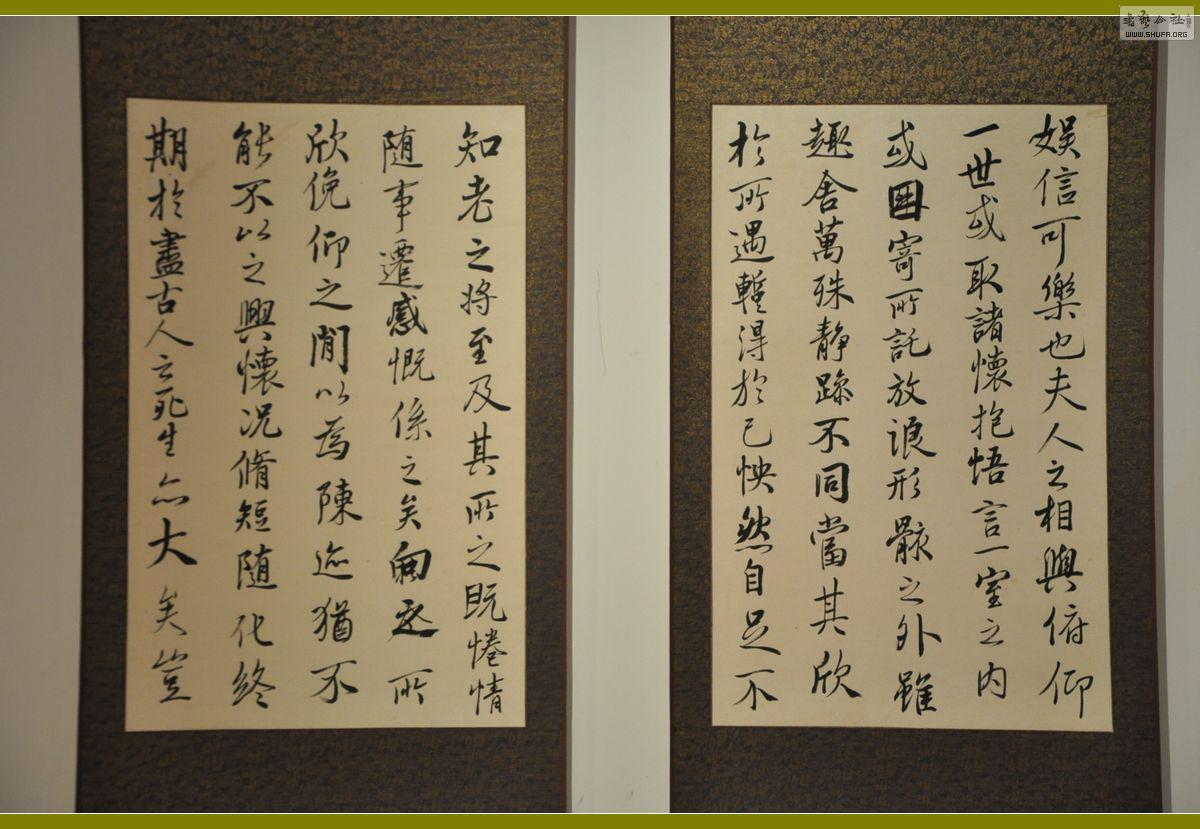 娱信可樂也夫人之相與俯仰
一世或取諸懷抱悟言一室之内
或因寄所託放浪形骸之外雖
趣舍萬殊静躁不同當其欣
於所遇蹔得於己怏然自足不
知老之將至及其所之既惓情
随事遷感慨係之矣向之所
欣俛仰之閒以為陳迹猶不
能不以之興懷况脩短随化終
期於盡古人云死生亦大矣豈
書藝公社
WWW.SHUFA.ORG